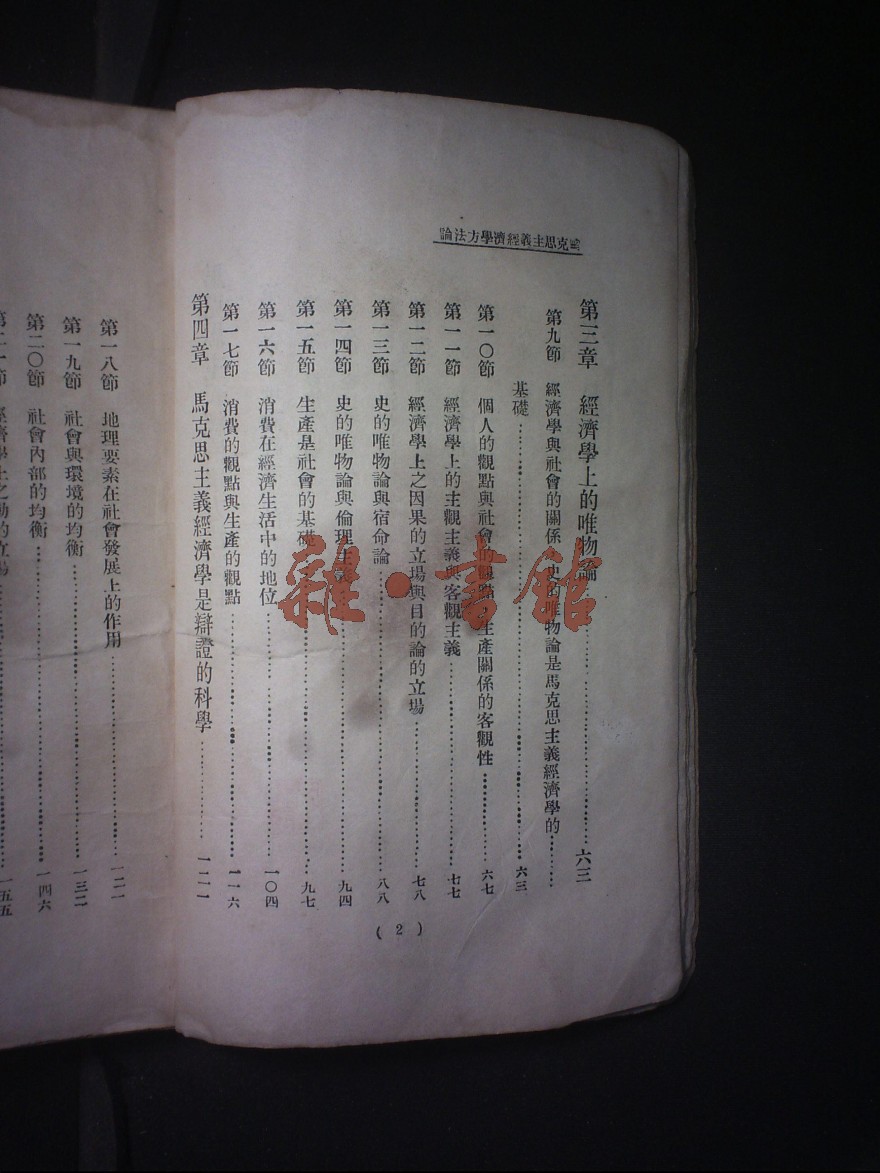 克思主義經濟學方法論
第三章　經濟學上的唯物論……六三
第九節　經濟學與社會的關係　史的唯物論是馬克思主義經濟學的……
基礎……六三
第一〇節　個人的觀點與社會的觀點　生產關係的客觀性……六七
第一一節　經濟學上的主觀主義與客觀主義……七七
第一二節　經濟學上之因果的立場與目的論的立場……七八
第一三節　史的唯物論與宿命論……八八
第一四節　史的唯物論與倫理主義……九四
第一五節　生產是社會的基礎……九七
第一六節　消費在經濟生活中的地位……一〇四
第一七節　消費的觀點與生產的觀點……一一六
第四章　馬克思主義經濟學是辯證的科學……一二一
第一八節　地理要素在社會發展上的作用……一二一
第一九節　社會與環境的均衡……一三二
第二〇節　社會內部的均衡……一四六
第二一節　經濟學上之動的立場……一五五
(2)
雜·書館